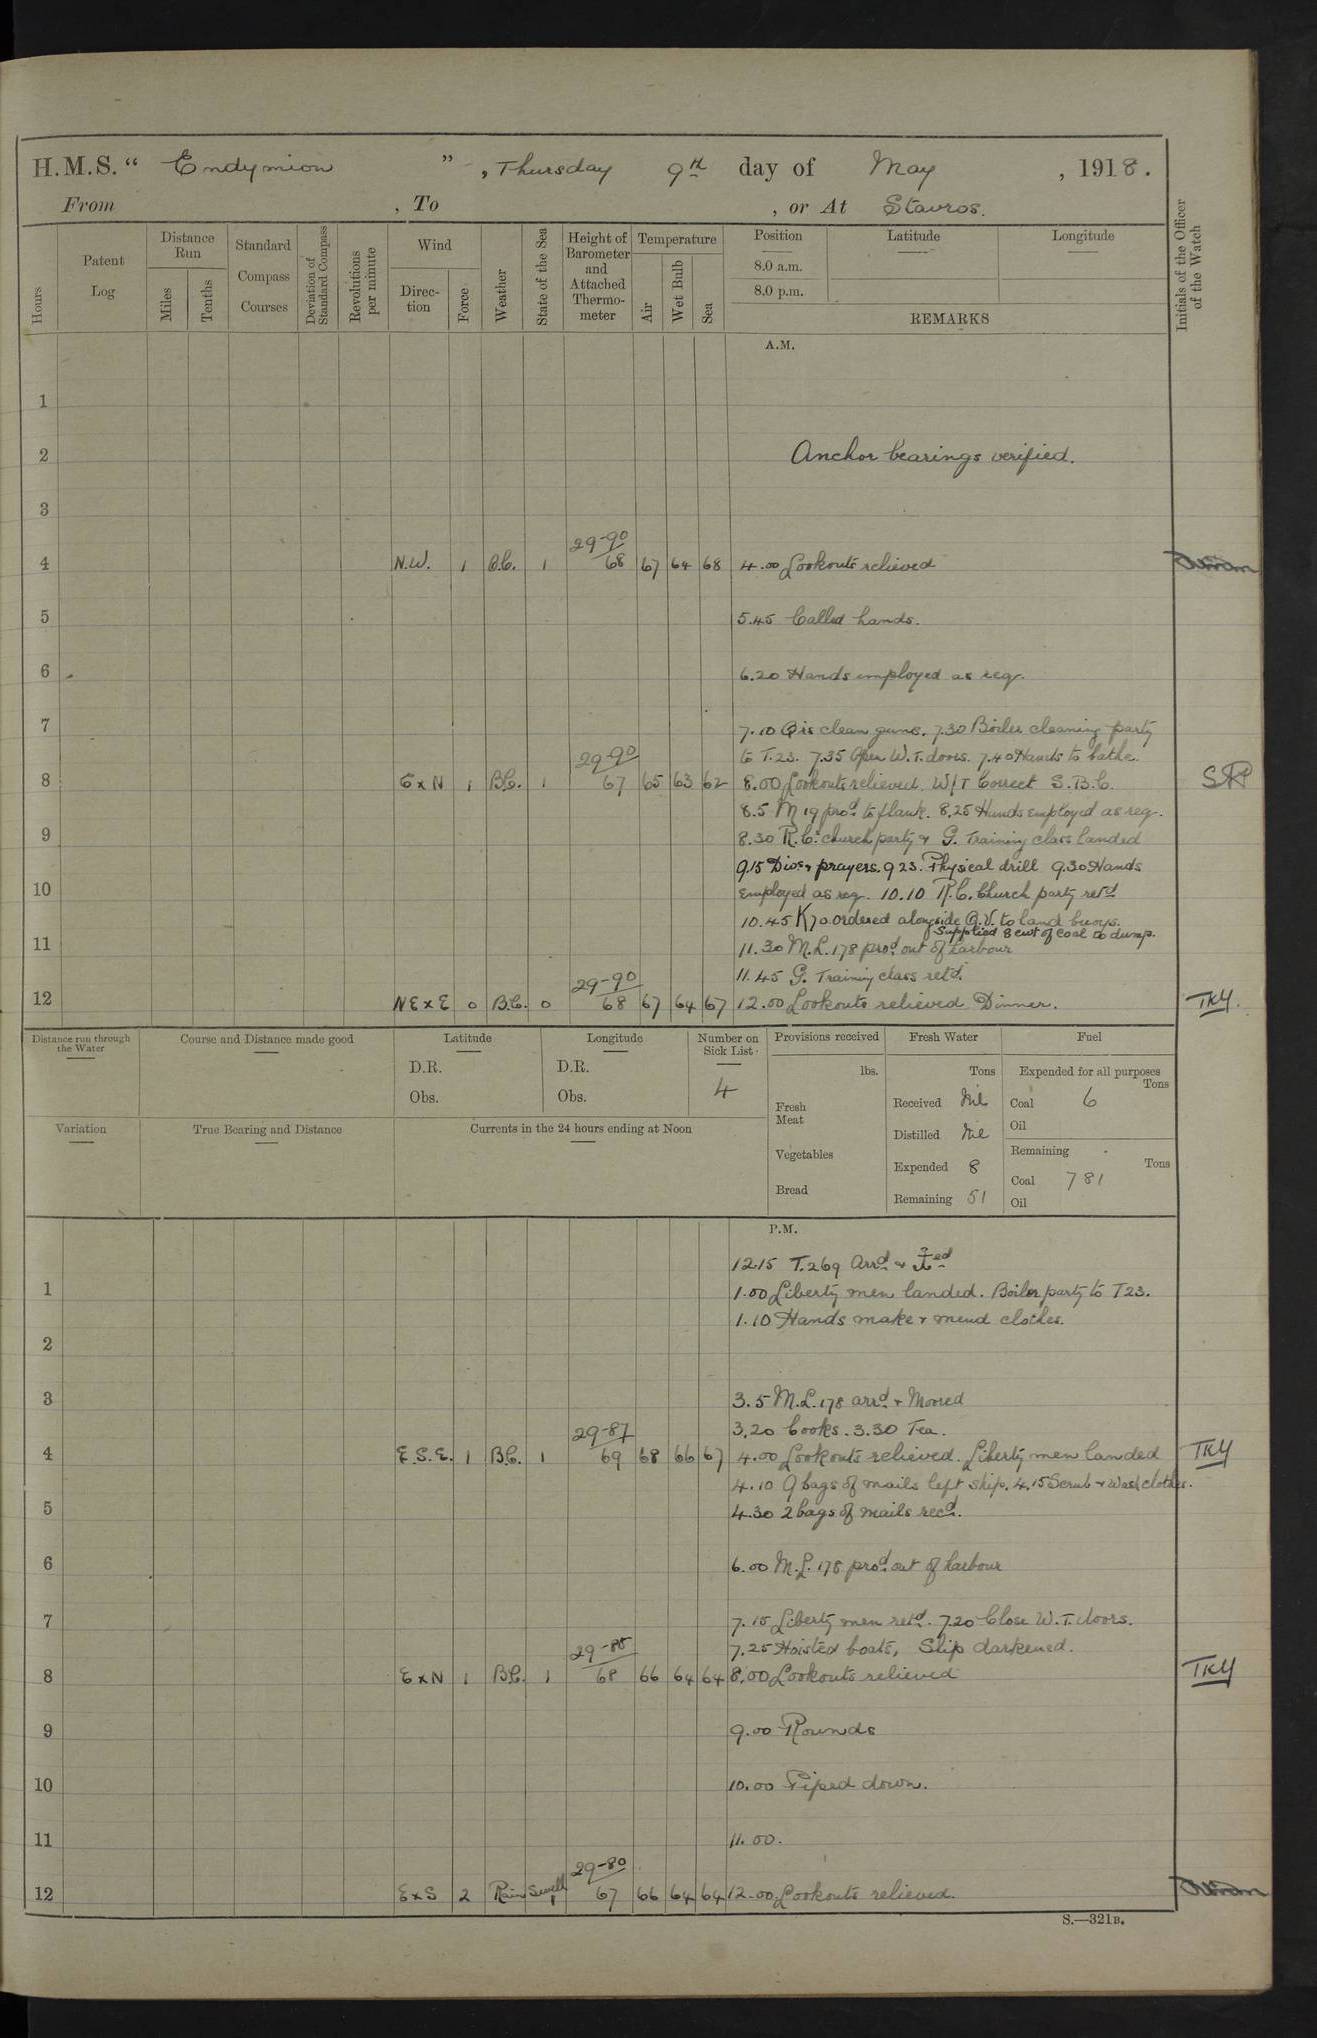 H.M.S. “ Endymion ” , Thursday 9th day of May , 1918.
From , To , or At Stavros.
Hours
Patent Log
Distance Run
Miles
Tenths
Standard Compass Courses
Deviation of Standard Compass
Revolutions per minute
Wind
Direction
Force
Weather
State of the Sea
Height of Barometer and Attached Thermometer
Temperature
Air
Wet Bulb
Sea
Position Latitude Longitude
8.0 a.m.
8.0 p.m.
REMARKS
Initials of the Officer of the Watch
A.M.
1
2 Anchor bearings verified.
3
29-90
4 N.W. 1 B.C. 1 68 67 64 68 4.00 Lookouts relieved
5 5.45 Called hands.
6 6.20 Hands employed as req.
7 7.10 Qrs clean guns. 7.30 Boiler cleaning party
29-90 to T.23. 7.35 Open W.T. doors. 7.40 Hands to bathe.
8 E x N 1 B.C. 1 67 65 63 62 8.00 Lookouts relieved. W/T Correct S.B.C.
8.5 M 19 prod. to flank. 8.25 Hands employed as req.
9 8.30 R.C. church party & G. Training class landed
9.15 Divs. & prayers. 9 23. Physical drill 9.30 Hands
10 employed as req. 10.10 R.C. Church party retd
10.45 K70 ordered alongside Q.V. to land buoys.
Supplied 8 cwt of coal to dump.
11 11.30 M.L. 178 prod. out of harbour
29-90 11.45 G. Training class retd.
12 NE x E 0 B.C. 0 68 67 64 67 12.00 Lookouts relieved Dinner. TKY.
Distance run through the Water
Course and Distance made good
Latitude
D.R.
Obs.
Longitude
D.R.
Obs.
Number on Sick List
4
Provisions received
lbs.
Fresh Meat
Vegetables
Bread
Fresh Water
Tons
Received Nil
Distilled Nil
Expended 8
Remaining 51
Fuel
Expended for all purposes
Tons
Coal 6
Oil
Remaining
Tons
Coal 781
Oil
Variation
True Bearing and Distance
Currents in the 24 hours ending at Noon
P.M.
12.15 T.269 Arrd. & ⚓ed
1 1.00 Liberty men landed. Boiler party to T23.
1.10 Hands make & mend clothes.
2
3 3.5 M.L. 178 arrd. & Moored
29-87 3.20 Cooks. 3.30 Tea.
4 E.S.E. 1 B.C. 1 69 68 66 67 4.00 Lookouts relieved. Liberty men landed TKY
4.10 9 bags of mails left ship. 4.15 Scrub & Wash clothes.
5 4.30 2 bags of mails recd.
6 6.00 M.L. 178 prod. out of harbour
7 7.15 Liberty men retd. 7.20 Close W.T. doors.
29-85 7.25 Hoisted boats, Ship darkened.
8 E x N 1 B.C. 1 68 66 64 64 8.00 Lookouts relieved TKY
9 9.00 Rounds
10 10.00 Piped down.
11 11.00.
29-80
12 E x S 2 Rain Swell 1 67 66 64 64 12.00 Lookouts relieved.
S.—321B.